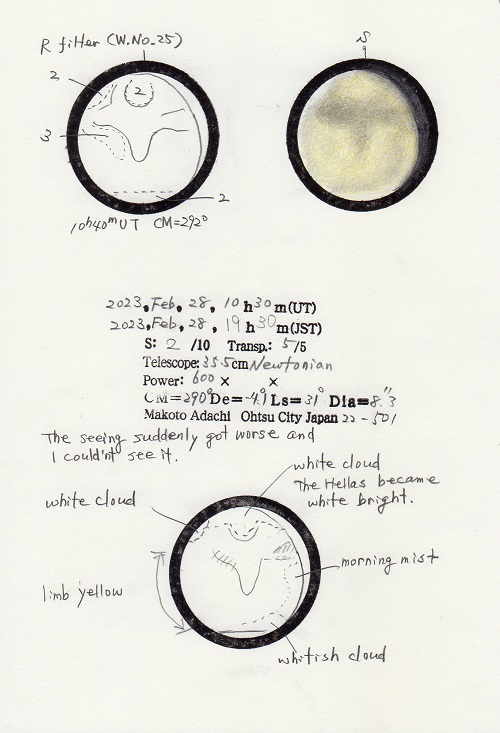 R filter (W.No.25)
S
2
2
3
2
10h40m UT CM=292°
2023, Feb, 28, 10 h 30 m (UT)
2023, Feb, 28, 19 h 30 m (JST)
S: 2 /10 Transp.: 5/5
Telescope: 35.5cm Newtonian
Power: 600 × ×
CM=290° De=-4.9° Ls=31° Dia=8".3
Makoto Adachi Ohtsu City Japan 22-501
The seeing suddenly got worse and
I could'nt see it.
white cloud
The Hellas became
white bright.
white cloud
morning mist
limb yellow
whitish cloud